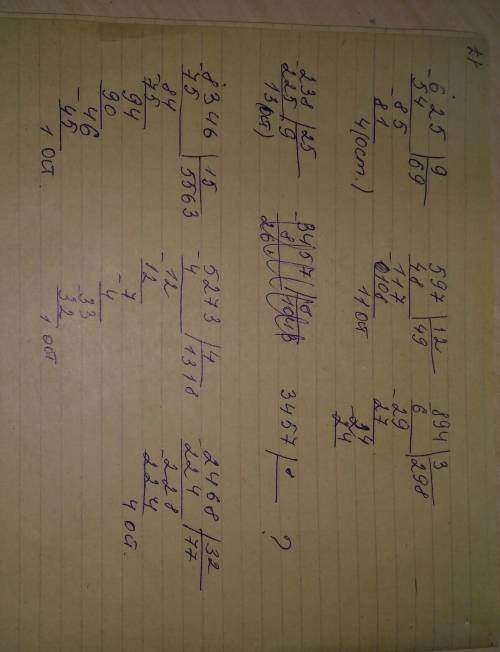 625 | 9
- 54 69
- 85
81
4 (ост.)
597 | 12
- 48 49
- 117
108
11 ост
894 | 3
6 298
- 29
27
- 24
24
- 238 | 25
225 9
13 (ост)
3457 | 8 ?
- 8346 | 15
45 5563
- 84
75
94
90
- 46
45
1 ост
5273 | 4
- 4 1318
- 12
12
- 7
4
- 33
32
1 ост
2468 | 32
- 224 77
- 228
224
4 ост.